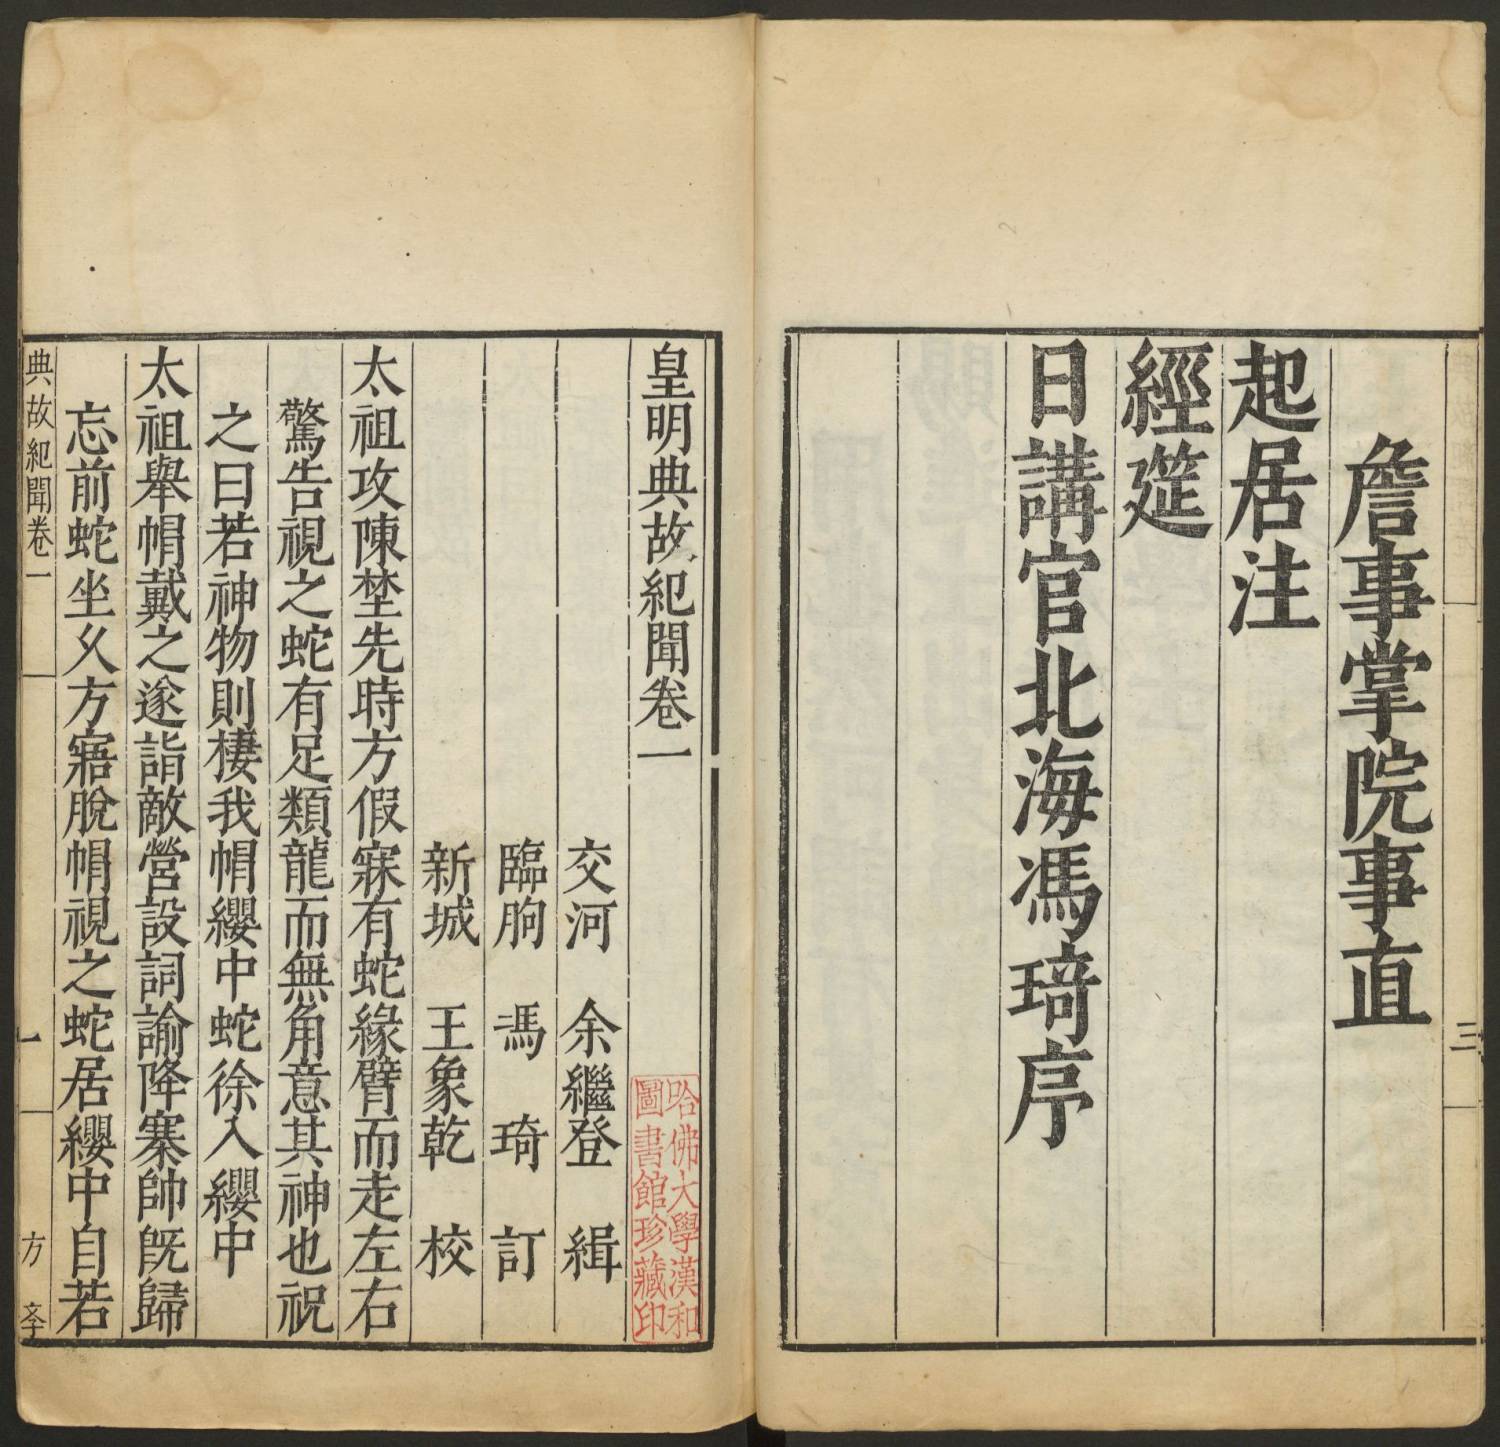 詹事掌院事直
起居注
經筵
日講官北海馮琦序
三
皇明典故紀聞卷一
交河 余繼登 緝
臨朐 馮 琦 訂
新城 王象乾 校
太祖攻陳埜先時方假寐有蛇緣臂而走左右
驚告視之蛇有足類龍而無角意其神也祝
之曰若神物則棲我帽纓中蛇徐入纓中
太祖舉帽戴之遂詣敵營設詞諭降寨帥旣歸
忘前蛇坐久方寤脫帽視之蛇居纓中自若
典故紀聞卷一
一
方
哈佛大學漢和
圖書館珍藏印